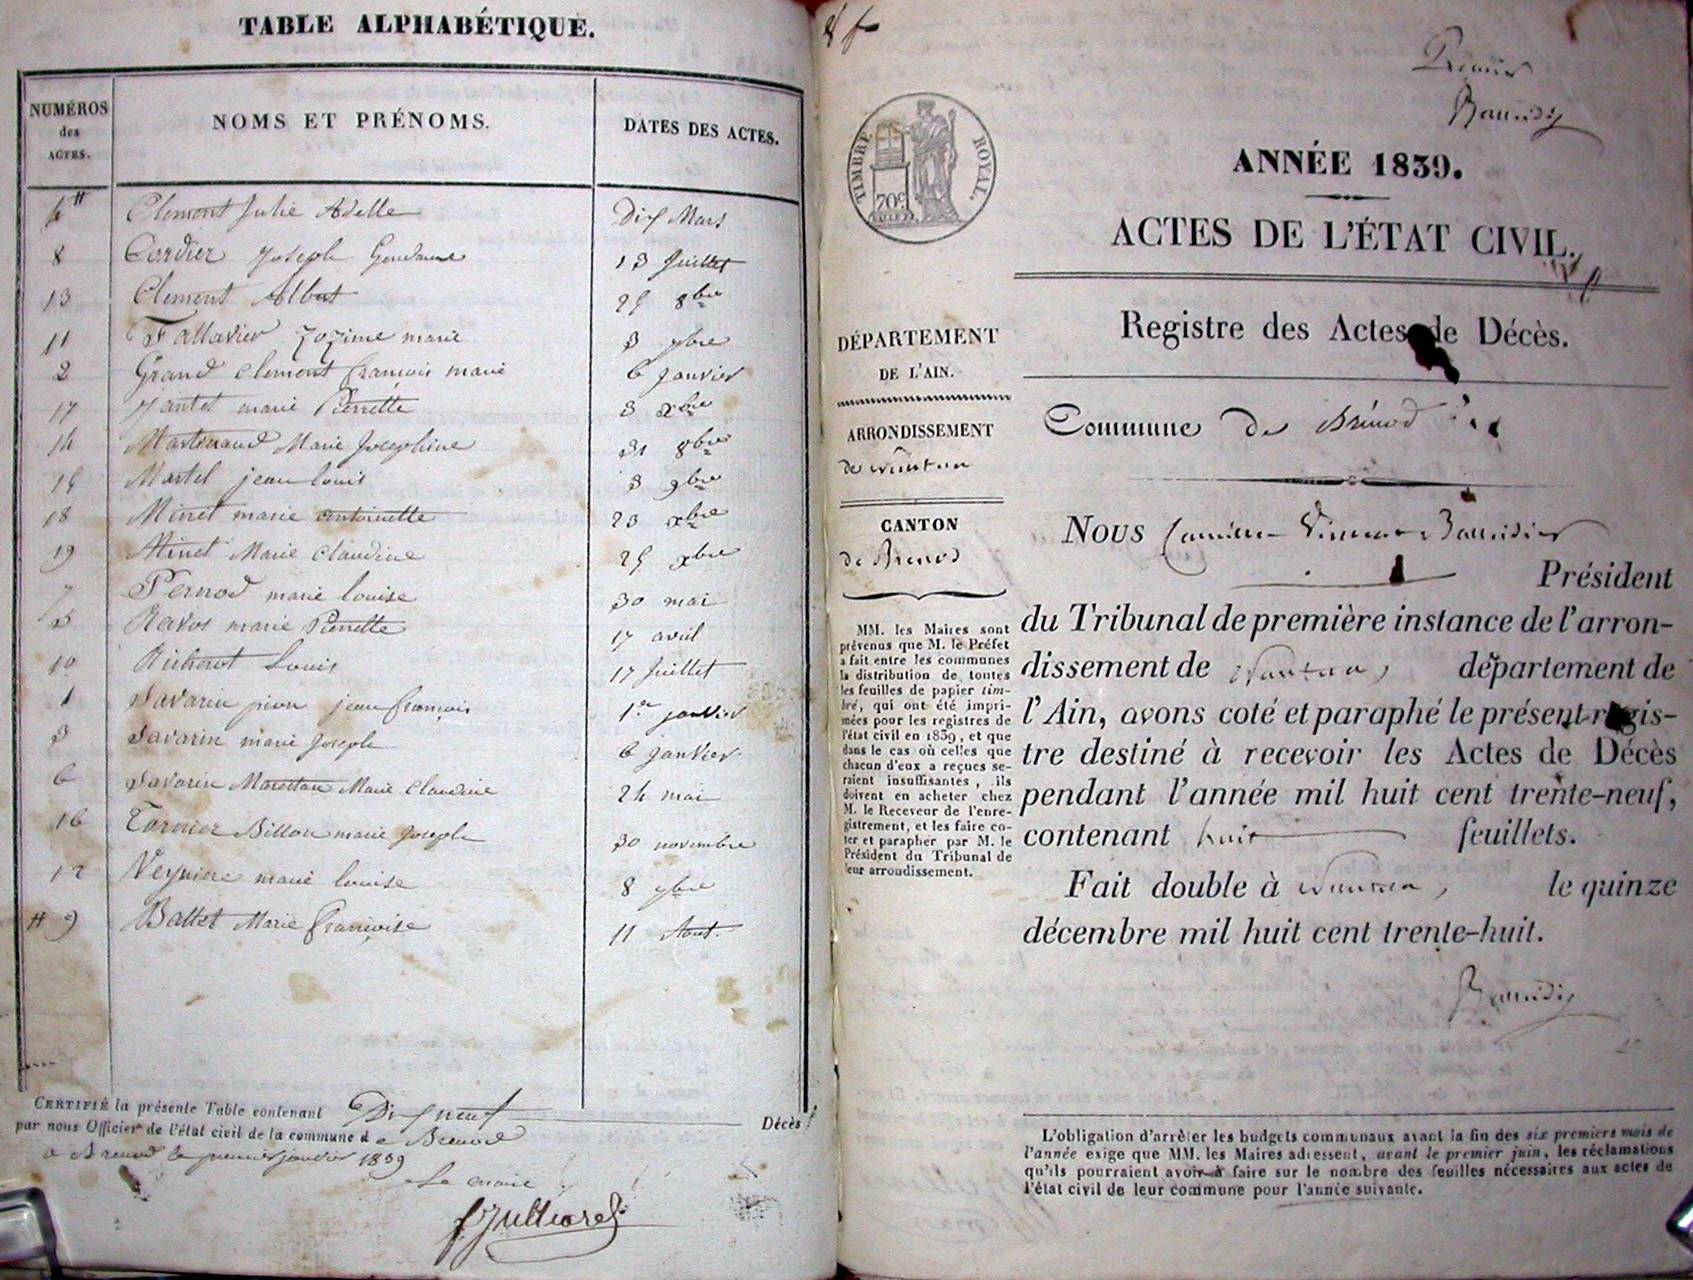 TABLE ALPHABÉTIQUE.
NUMÉROS des ACTES. NOMS ET PRÉNOMS. DATES DES ACTES.
4 # Clement Julie Adelle Dix Mars
8 Cordier Joseph 13 Juillet
13 Clement Albert 25 8bre
11 Fallavier Zozime marie 3 7bre
2 Grand Clement François marie 6 Janvier
17 Jantet marie Pierrette 3 xbre
14 Martinand Marie Josephine 31 8bre
15 Martel jean louis 3 9bre
18 Minet marie antoinette 23 xbre
19 Minet Marie Claudine 25 xbre
7 Pernod marie louise 30 mai
5 Ravos marie Pierrette 17 avril
10 Richerot Louis 17 Juillet
1 Savarin pion jean françois 1.er janvier
3 Savarin marie Joseph 6 Janvier
6 Savarin Marettan Marie Claudine 24 mai
16 Tornier Billon marie Joseph 30 novembre
12 Veyniere marie louise 8 7bre
# 9 Ballet Marie Françoise 11 Aout.
CERTIFIÉ la présente Table contenant Dix neuf Décès
par nous Officier de l'état civil de la commune de Brenod
a Brenod le premier janvier 1839
Le maire
f Julliard
Premier
ANNÉE 1839.
ACTES DE L'ÉTAT CIVIL.
TIMBRE ROYAL.
70c
Registre des Actes de Décès.
DÉPARTEMENT
DE L'AIN.
ARRONDISSEMENT
de Nantua
CANTON
de Brenod
MM. les Maires sont
prévenus que M. le Préfet
a fait entre les communes
la distribution de toutes
les feuilles de papier tim-
bré, qui ont été impri-
mées pour les registres de
l'état civil en 1839, et que
dans le cas où celles que
chacun d'eux a reçues se-
raient insuffisantes, ils
doivent en acheter chez
M. le Receveur de l'enre-
gistrement, et les faire co-
ter et parapher par M. le
Président du Tribunal de
leur arrondissement.
Commune de Brénod
Nous
Président
du Tribunal de première instance de l'arron-
dissement de Nantua, département de
l'Ain, avons coté et paraphé le présent regis-
tre destiné à recevoir les Actes de Décès
pendant l'année mil huit cent trente-neuf,
contenant huit feuillets.
Fait double à Nantua, le quinze
décembre mil huit cent trente-huit.
L'obligation d'arrêter les budgets communaux avant la fin des six premiers mois de
l'année exige que MM. les Maires adressent, avant le premier juin, les réclamations
qu'ils pourraient avoir à faire sur le nombre des feuilles nécessaires aux actes de
l'état civil de leur commune pour l'année suivante.